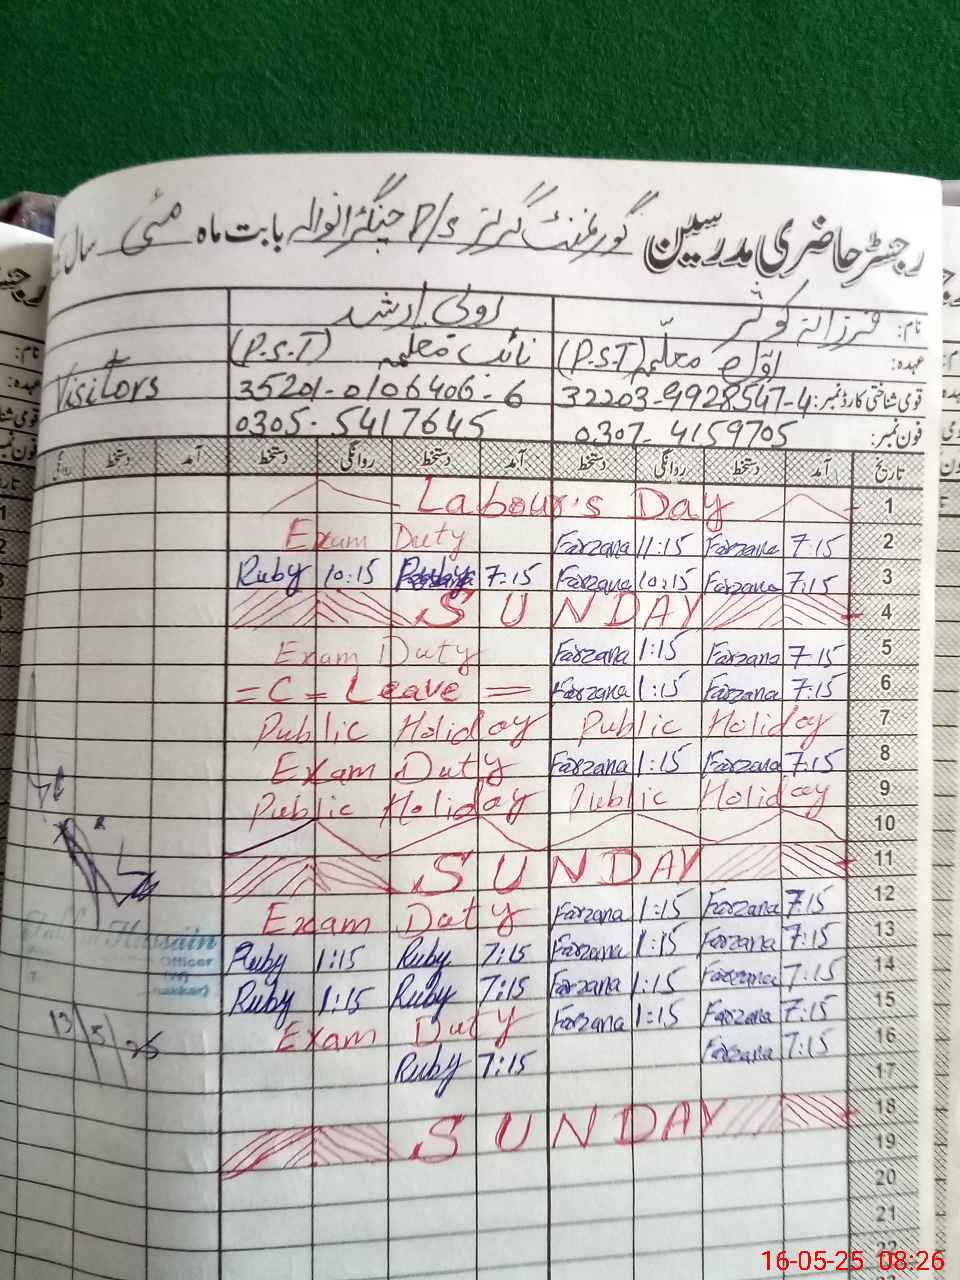 رجسٹر حاضری مدرسین گورنمنٹ گرلز P/S جینگڑانوالہ بابت ماہ مئی سال
نام: فرزانہ کوثر روبی ارشد
عہدہ: اوّل معلمہ (P.S.T) نائب معلمہ (P.S.T)
قومی شناختی کارڈ نمبر: 32203-9928547-4 35201-0106406-6 Visitors
فون نمبر: 0307-4159705 0305-5417645
تاریخ آمد دستخط روانگی دستخط آمد دستخط روانگی دستخط آمد دستخط روانگی
Labour's Day 1
Exam Duty Farzana 11:15 Farzana 7:15 2
Ruby 10:15 7:15 Farzana 10:15 Farzana 7:15 3
SUNDAY 4
Exam Duty Farzana 1:15 Farzana 7:15 5
= C = Leave = Farzana 1:15 Farzana 7:15 6
Public Holiday Public Holiday 7
Exam Duty Farzana 1:15 Farzana 7:15 8
Public Holiday Public Holiday 9
10
SUNDAY 11
Exam Duty Farzana 1:15 Farzana 7:15 12
Ruby 1:15 Ruby 7:15 Farzana 1:15 Farzana 7:15 13
Ruby 1:15 Ruby 7:15 Farzana 1:15 Farzana 7:15 14
Exam Duty Farzana 1:15 Farzana 7:15 15
Ruby 7:15 Farzana 7:15 16
17
SUNDAY 18
19
20
21
22
Hussain
Officer
13/5/25
16-05-25 08:26